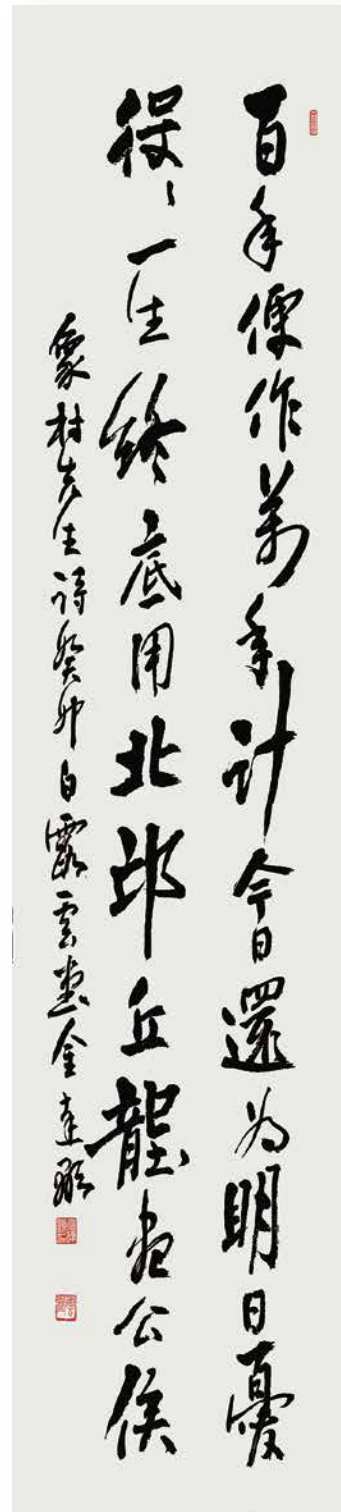 百年便作萬年計今日還為明日憂
役〻一生終底用北邙丘壟盡公侯
象村先生詩癸卯白露雲堂金達